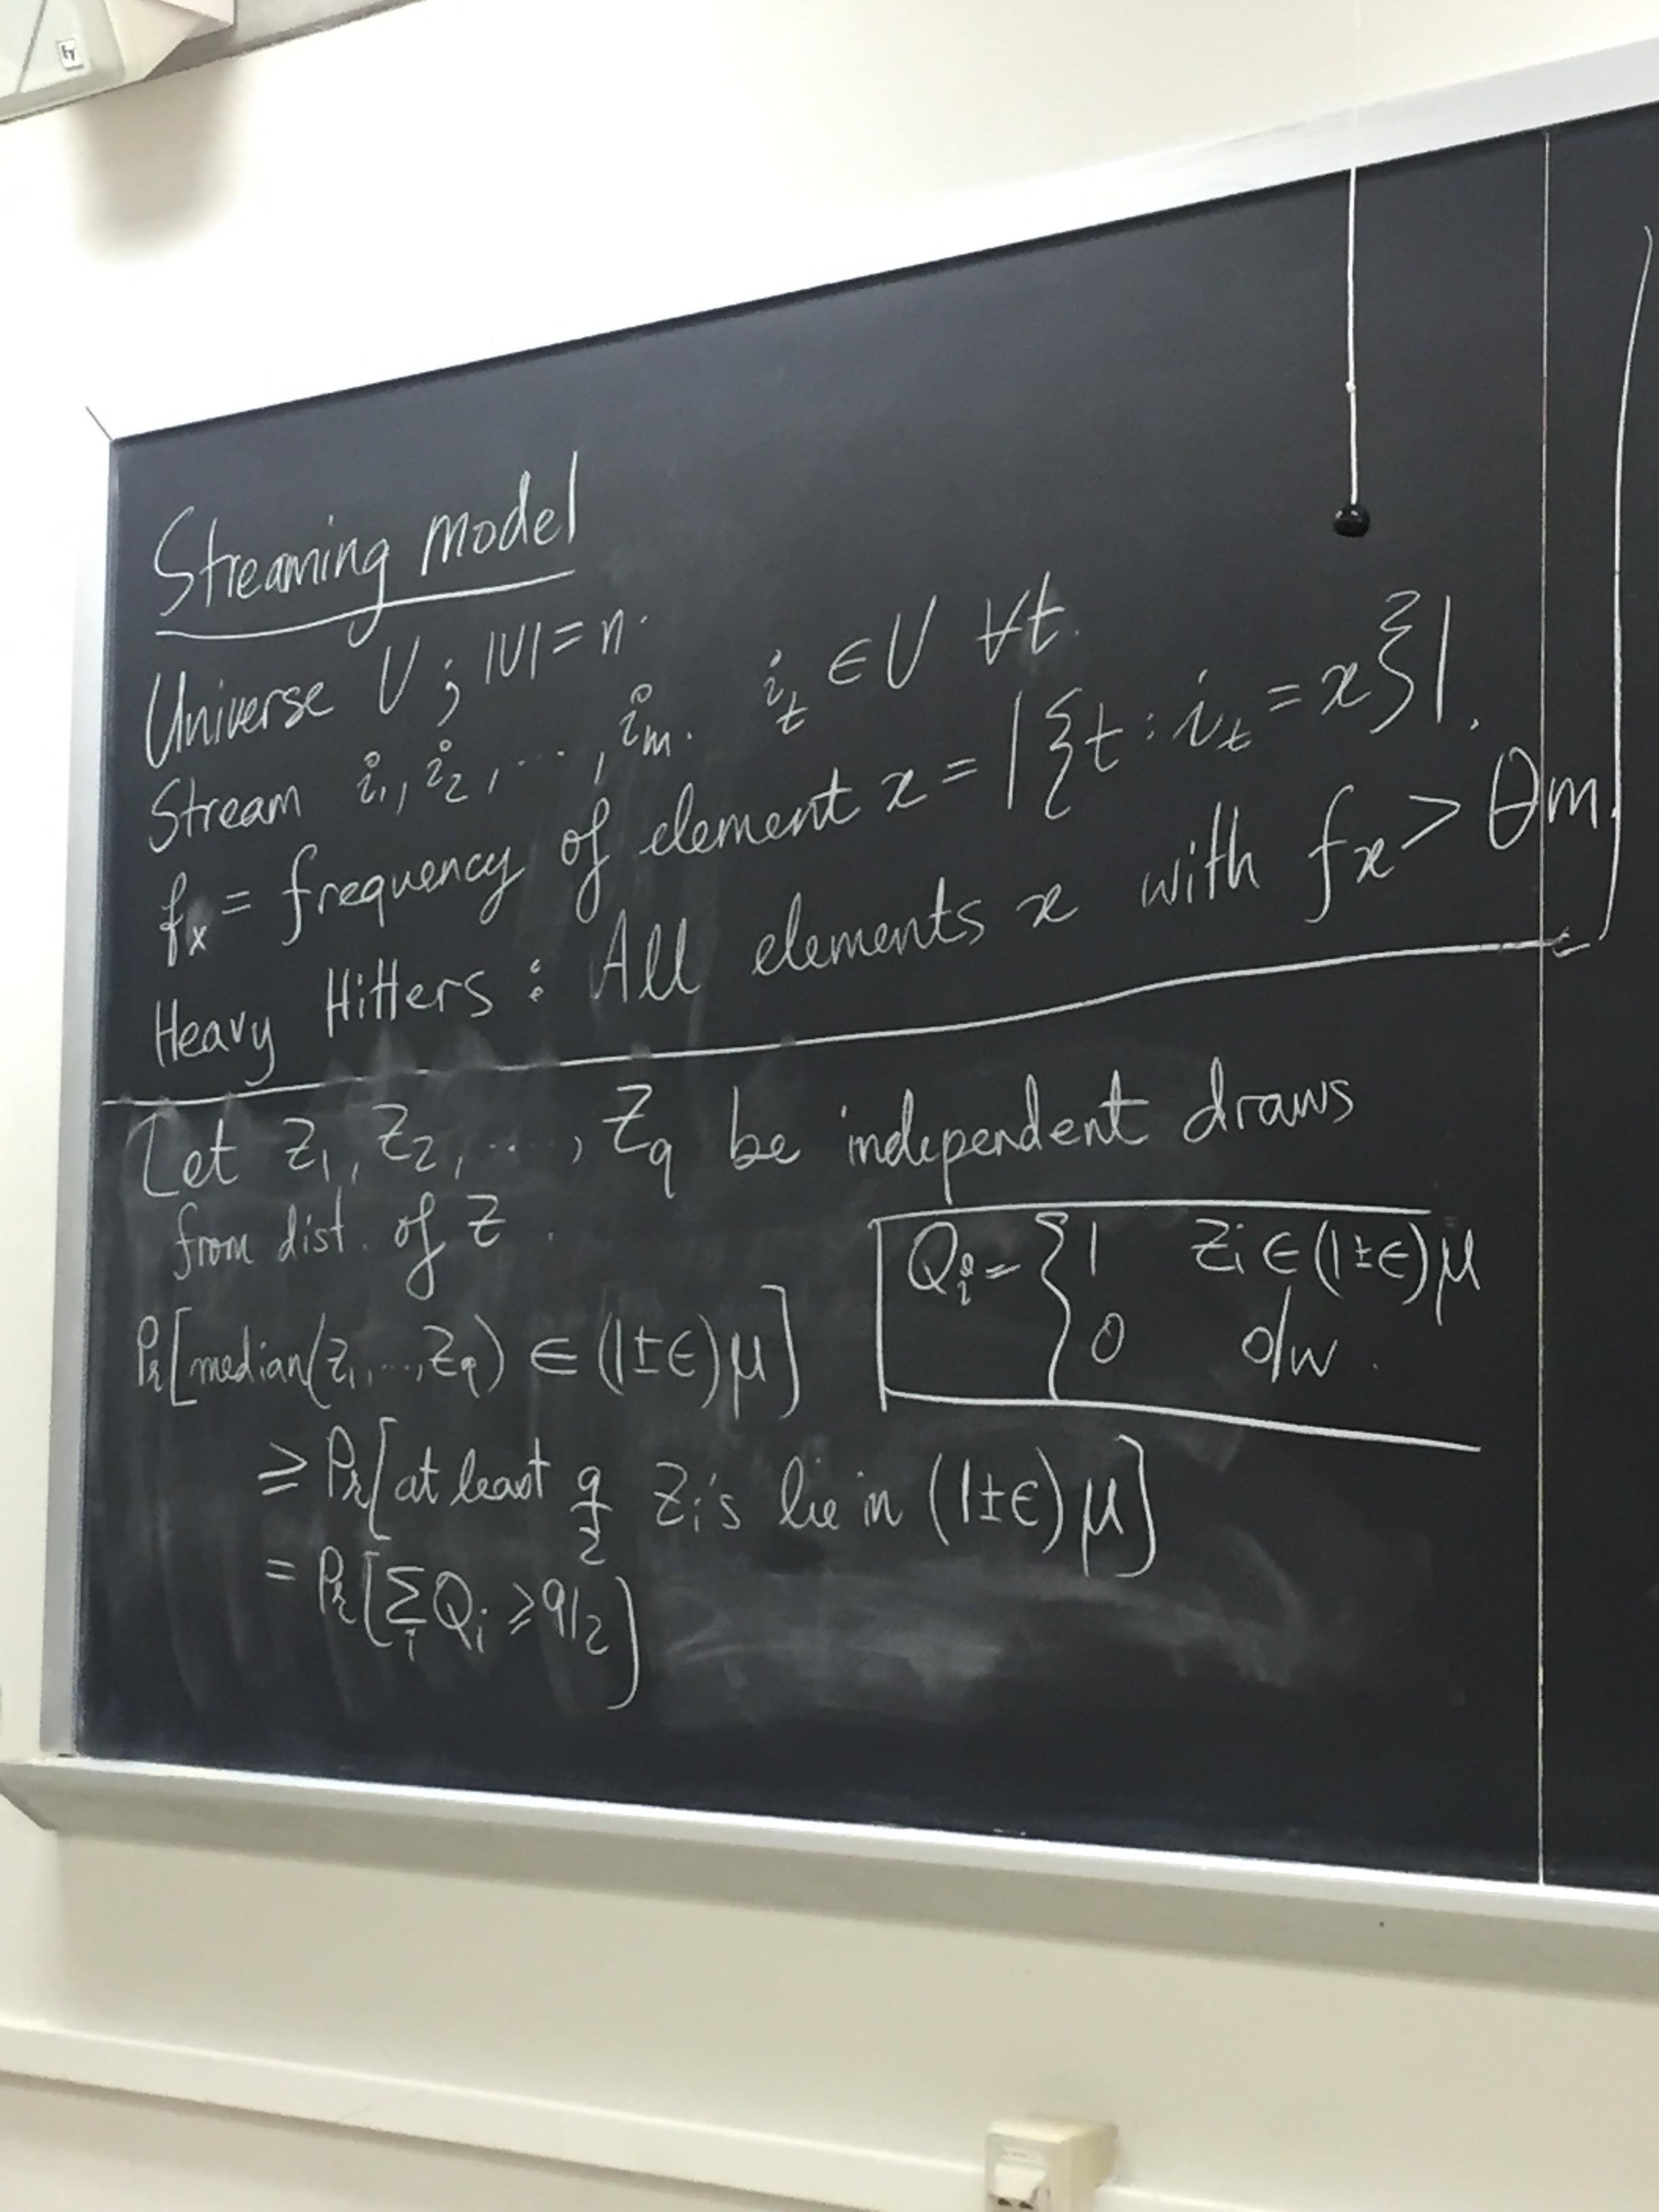 Streaming model
Universe U ; |U| = n.
Stream i₁, i₂, ..., iₘ. iₜ ∈ U ∀t.
fₓ = frequency of element x = |{t : iₜ = x}|.
Heavy Hitters : All elements x with fₓ > θm.
Let Z₁, Z₂, ..., Z_q be independent draws
from dist. of Z.
Q_i = { 1 Z_i ∈ (1±ϵ)μ
0 o/w.
Pr[median(Z₁, ..., Z_q) ∈ (1±ϵ)μ]
≥ Pr[at least q/2 Z_i's lie in (1±ϵ)μ]
= Pr[∑_i Q_i ≥ q/2]